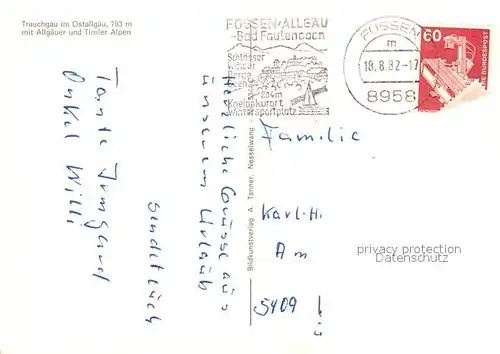 Trauchgau im Ostallgäu, 793 m
mit Allgäuer und Tiroler Alpen
FÜSSEN/ALLGÄU
-Bad Faulenbach
Schlösser
Wälder
Berge
Seen
Kneippkurort
Wintersportplatz
FÜSSEN
m
18.8.82-17
8958
60
DEUTSCHE BUNDESPOST
Herzliche Grüsse aus
unserem Urlaub
sendet Euch
Tante Irmgard
Onkel Willi
Bildkunstverlag A. Tanner, Nesselwang
Familie
Karl-H.
Am
5409
privacy protection
Datenschutz